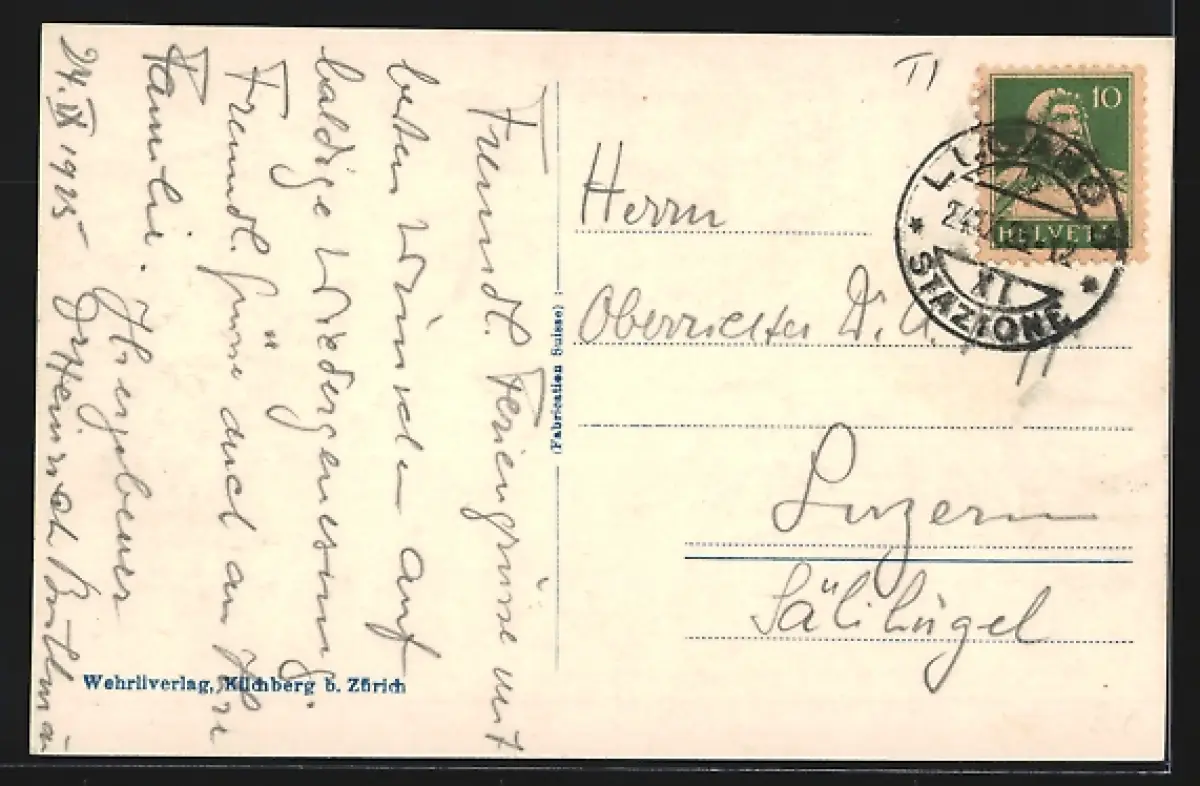 Freundl. Feriengrüsse mit
besten Wünschen auf
baldige Wiedergenesung.
Freundl. Grüsse auch an Ihre
Familie. Ihr ergebener
24. IX 1925 Heinrich
(Fabrication Suisse)
Wehrliverlag, Kilchberg b. Zürich
Herrn
Oberrichter Dr. A.
Luzern
Sälihügel
10
HELVETIA
LUGANO
STAZIONE
XI